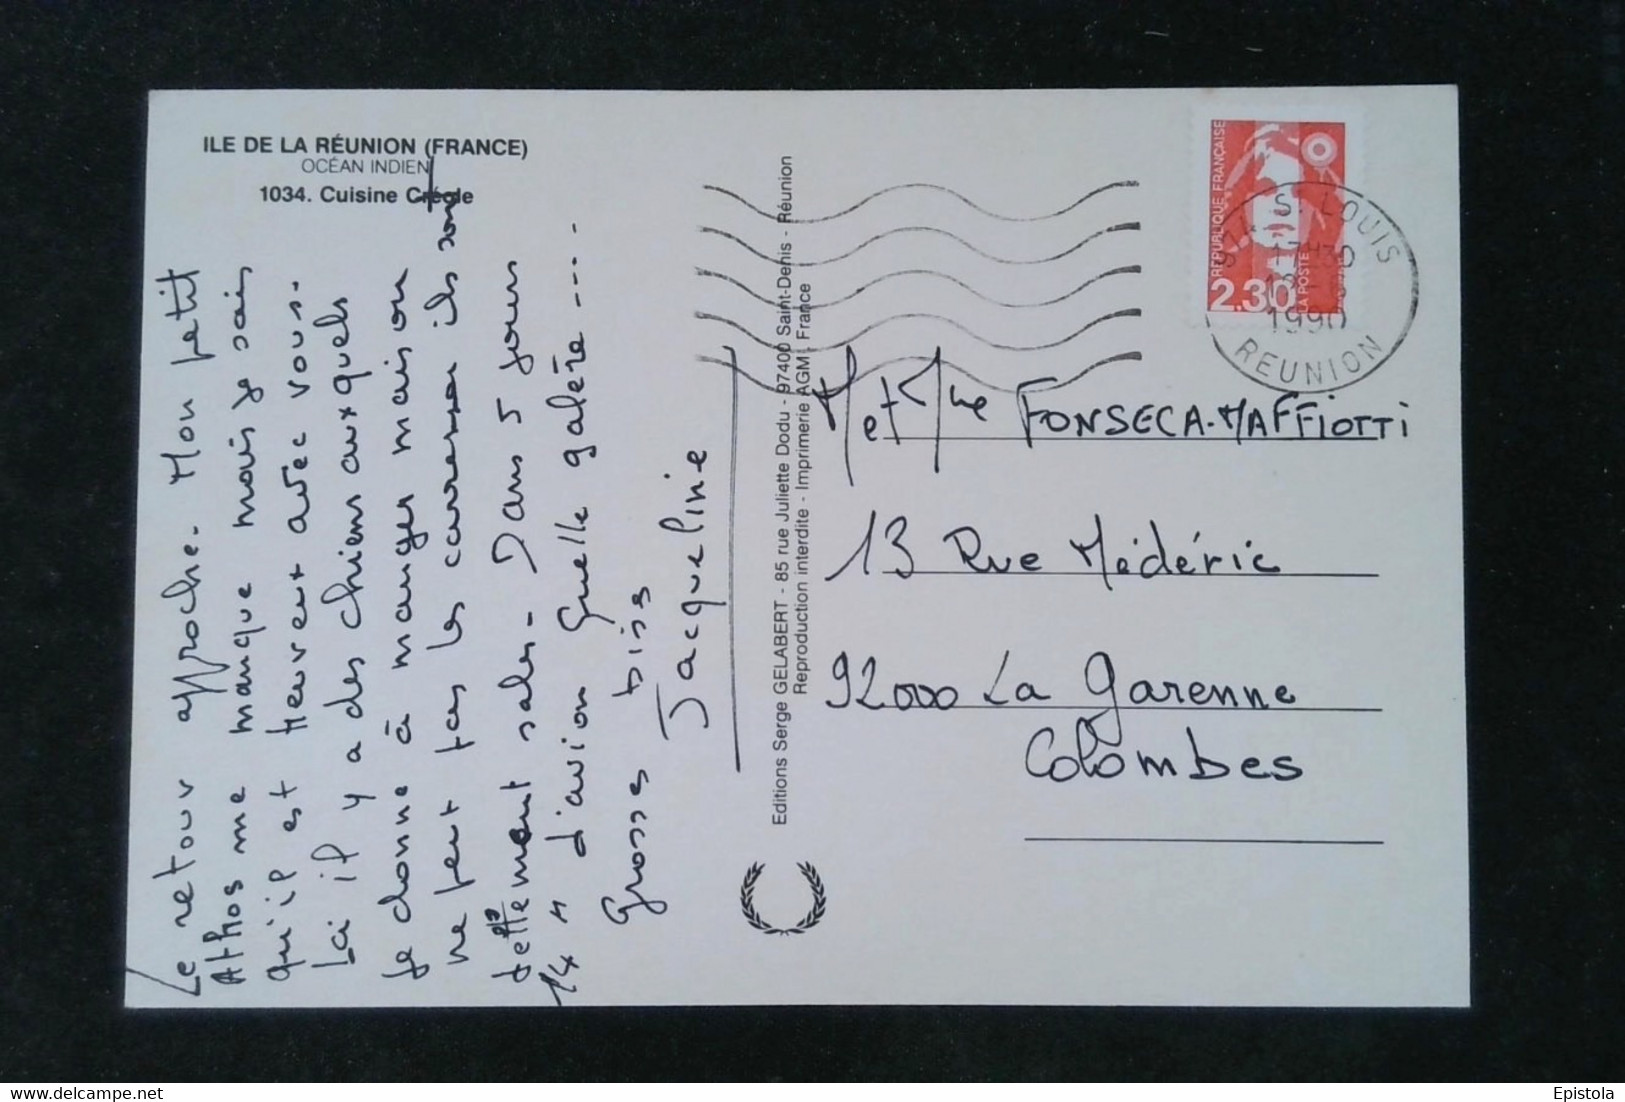 ILE DE LA RÉUNION (FRANCE)
OCÉAN INDIEN
1034. Cuisine Créole
Le retour approche. Mon petit
Athos me manque mais je sais
qu'il est heureux avec vous.
Ici il y a des chiens auxquels
je donne à manger mais on
ne peut pas les caresser ils sont
tellement sales. Dans 5 jours
14 H d'avion Quelle galère ---
Grosses bises
Jacqueline
Editions Serge GELABERT - 85 rue Juliette Dodu - 97400 Saint-Denis - Réunion
Reproduction interdite - Imprimerie AGM - France
RÉPUBLIQUE FRANÇAISE
LA POSTE
2.30
S. LOUIS
17H30
1990
REUNION
M et Mme FONSECA-MAFFIOTTI
13 Rue Médéric
92000 La Garenne
Colombes
www.delcampe.net
Epistola